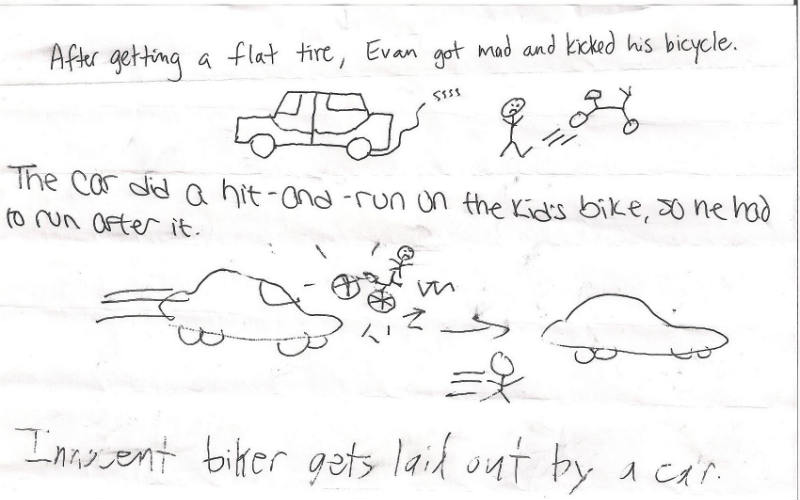 After getting a flat tire, Evan got mad and kicked his bicycle.
ssss
The car did a hit-and-run on the kid's bike, so he had
to run after it.
Innocent biker gets laid out by a car.